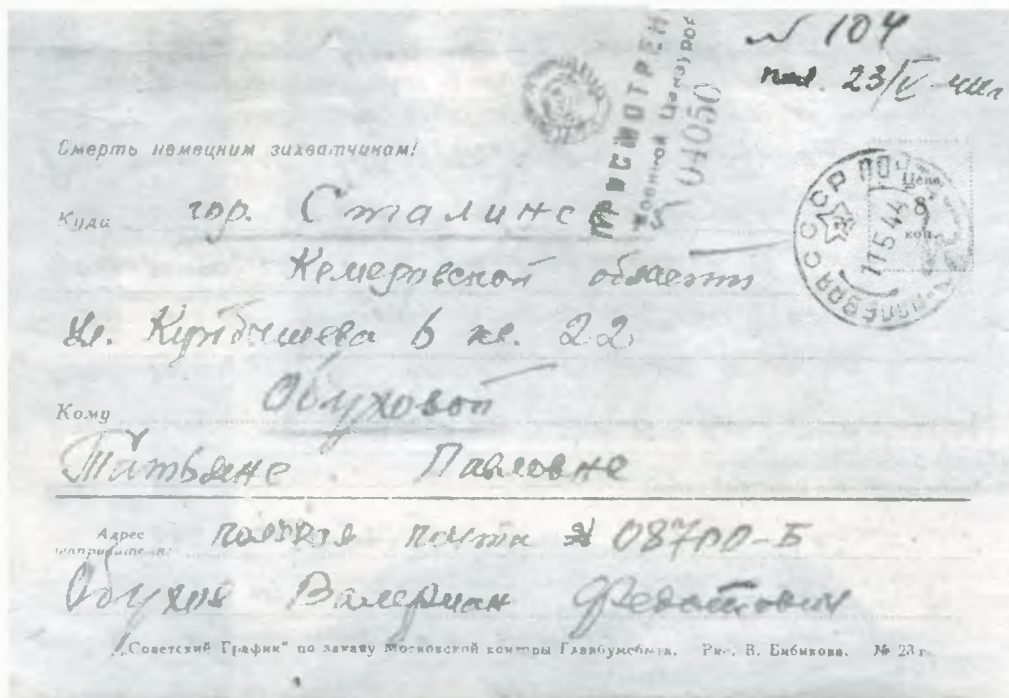 N 104
23/V
ПРОСМОТРЕНО
Военной Цензурой
04050
Смерть немецким захватчикам!
Куда гор. Сталинск
Кемеровской области
Ул. Куйбышева 6 кв. 22
Цена
8
коп.
ПОЛЕВАЯ
СССР
11 5 44
Кому Обуховой
Татьяне Павловне
Адрес
отправителя: полевая почта № 08700-Б
Обухов Валериан Федотович
„Советский График“ по заказу Московской конторы Главбумсбыта. Рис. В. Бибикова. № 23 г.